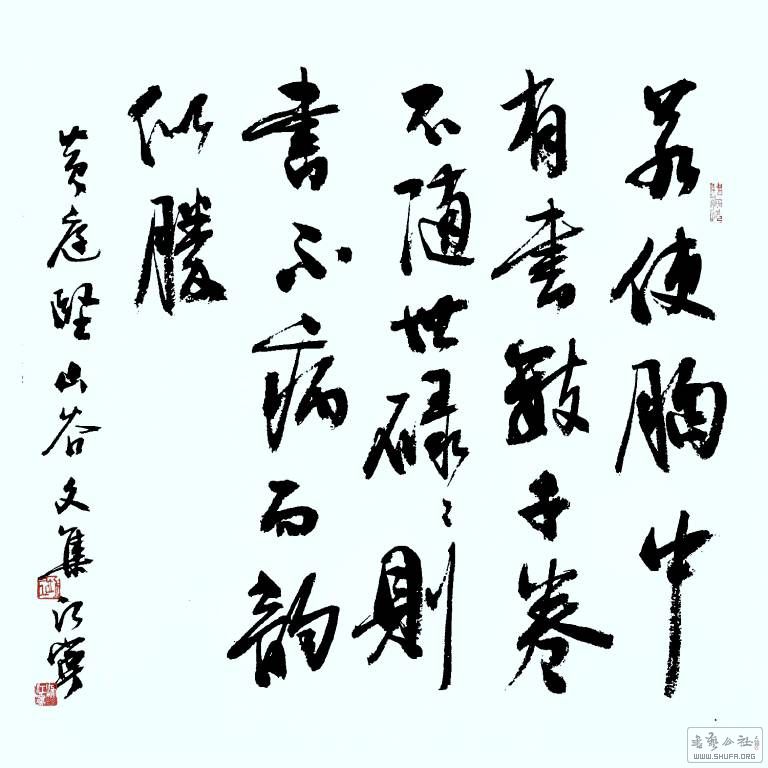 若使胸中
有書數千卷
不隨世碌々則
書不病而韵
似勝
黄庭堅山谷文集 江寧
書藝公社
WWW.SHUFA.ORG